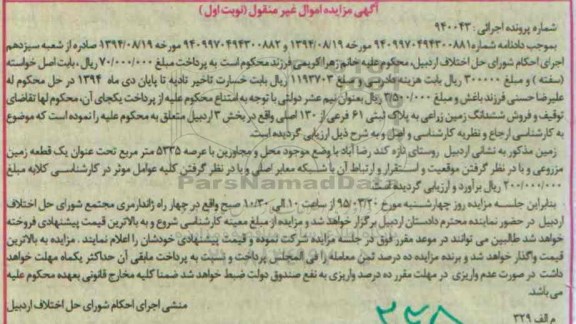 آگهی مزایده اموال غیر منقول (نوبت اول)
شماره پرونده اجرائی : ۹۴۰۰۴۳
بموجب دادنامه شماره ۹۴۰۹۹۷۰۴۹۴۳۰۰۸۸۱ مورخه ۱۳۹۴/۰۸/۱۹ و ۹۴۰۹۹۷۰۴۹۴۳۰۰۸۸۲ مورخه ۱۳۹۴/۰۸/۱۹ صادره از شعبه سیزدهم
اجرای احکام شورای حل اختلاف اردبیل، محکوم علیه خانم زهرا کریمی فرزند محکوم است به پرداخت مبلغ ۷۰/۰۰۰/۰۰۰ ریال ، بابت اصل خواسته
(سفته ) و مبلغ ۳۰۰۰۰۰ ریال بابت هزینه دادرسی و مبلغ ۱۱۹۳۷۰۳ ریال بابت خسارت تاخیر تادیه تا پایان دی ماه ۱۳۹۴ در حل محکوم له
علیرضا حسنی فرزند باغش و مبلغ ۳/۵۰۰/۰۰۰ ریال بعنوان نیم عشر دولتی با توجه به امتناع محکوم علیه از پرداخت یکجای آن، محکوم لها تقاضای
توقیف و فروش ششدانگ زمین زراعی به پلاک ثبتی ۶۱ فرعی از ۱۳۰ اصلی واقع در بخش ۳ اردبیل متعلق به محکوم علیه را نموده است که موضوع
به کارشناسی ارجاع و نظریه کارشناسی و اصل و به شرح ذیل ارزیابی گردیده است.
زمین مذکور به نشانی اردبیل روستای تازه کند رضا آباد با وضع موجود محل و مجاورین با عرصه ۵۳۳۵ متر مربع تحت عنوان یک قطعه زمین
مزروعی و با در نظر گرفتن موقعیت و استقرار و ارتباط آن با شبکه معابر اصلی و با در نظر گرفتن کلیه عوامل موثر در کارشناسی کلابه مبلغ
۲۰۰/۰۰۰/۰۰۰ ریال برآورد و ارزیابی گردیده
ParsNamadData
بنابراین جلسه مزایده روز چهارشنبه مورخ ۹۵/۰۳/۲۰ از ساعت ۱۰ الی ۱۰/۳۰ صبح واقع در چهار راه ژاندارمری مجتمع شورای حل اختلاف
اردبیل در حضور نماینده محترم دادستان اردبیل برگزار خواهد شد و مزایده از مبلغ معینه کارشناسی شروع و به بالاترین قیمت پیشنهادی فروخته
خواهد شد طالبین می توانند در موعد مقرر فوق در جلسه مزایده شرکت نموده و قیمت پیشنهادی خودشان را اعلام نمایند . مزایده به بالاترین
قیمت واگذار خواهد شد و برنده مزایده ده درصد ثمن معامله را فی المجلس پرداخت و نسبت به پرداخت مابقی آن حداکثر یکماه مهلت خواهد
داشت در صورت عدم واریزی در مهلت مقرر ده درصد واریزی به نفع صندوق دولت ضبط خواهد شد ضمنا کلیه مخارج قانونی بعهده محکوم علیه
می باشد.
منشی اجرای احکام شورای حل اختلاف اردبیل
م الف ۳۲۹